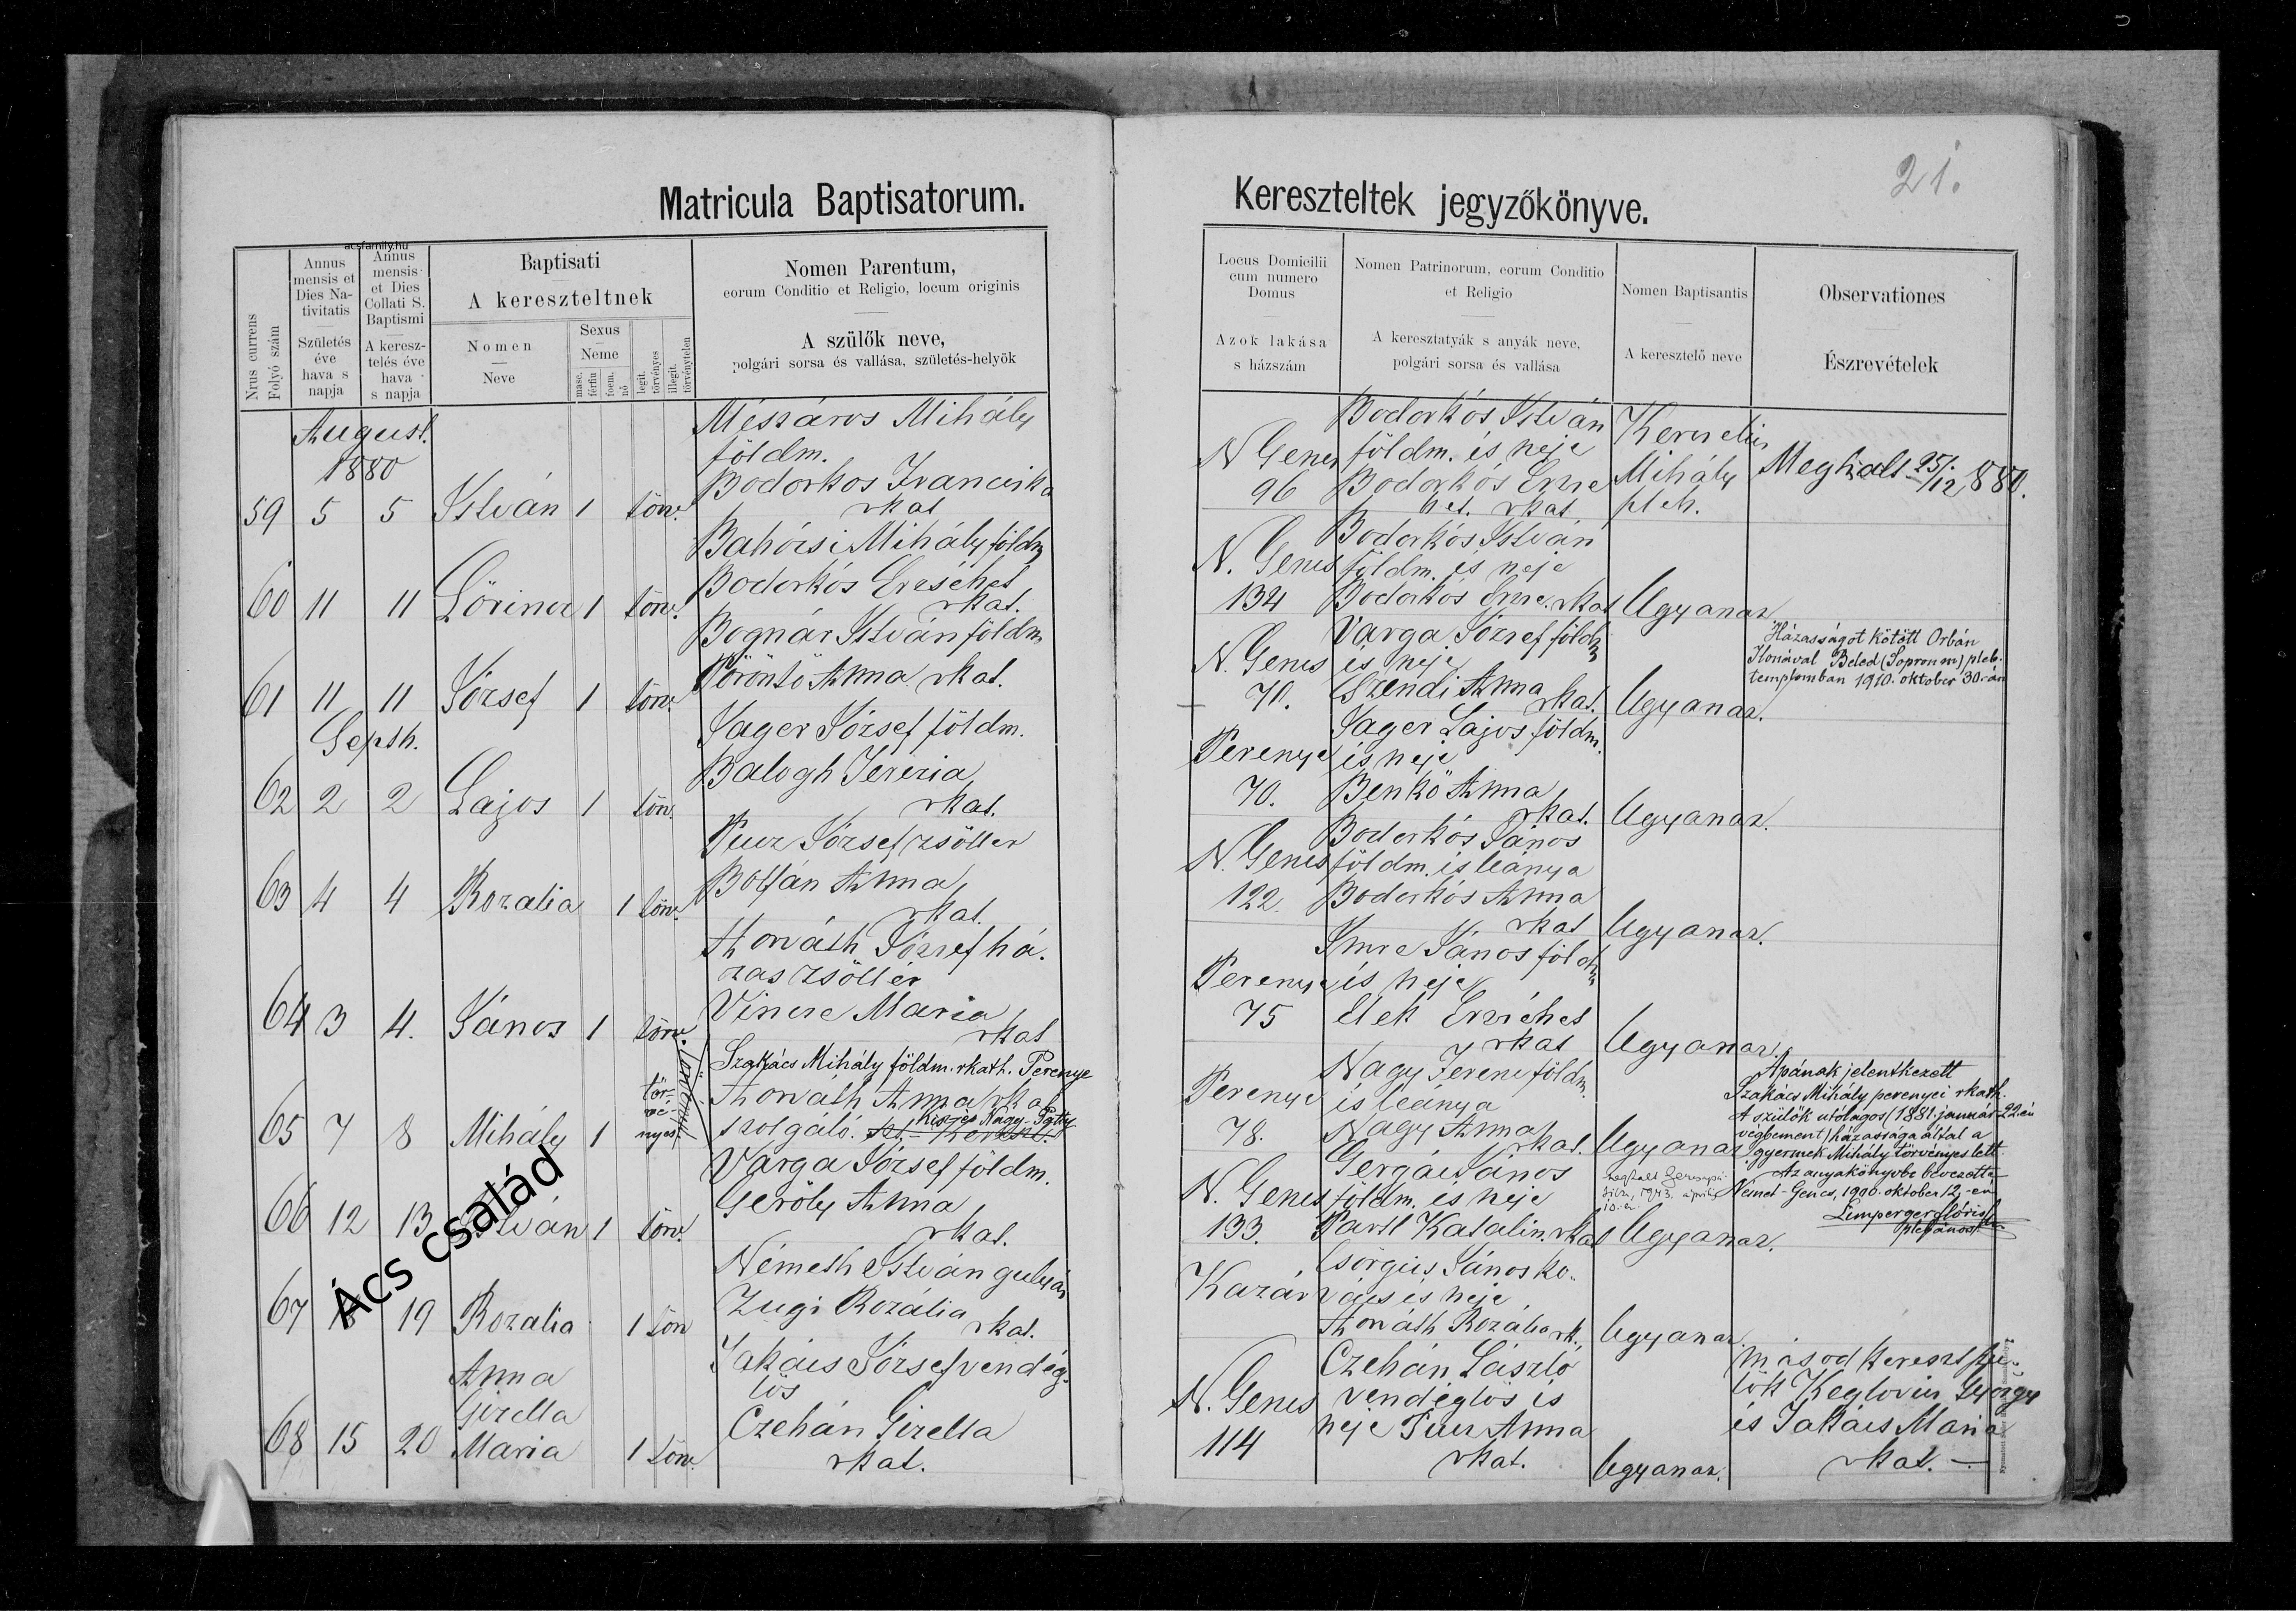 21.
Matricula Baptisatorum.
Kereszteltek jegyzőkönyve.
acsfamily.hu
Nrus currens
Folyó szám
Annus
mensis et
Dies Na-
tivitatis
Születés
éve
hava s
napja
Annus
mensis
et Dies
Collati S.
Baptismi
A keresz-
telés éve
hava
s napja
Baptisati
A kereszteltnek
Nomen
Neve
Sexus
Neme
masc.
férfiu
foem.
nő
legit.
törvényes
illegit.
törvénytelen
Nomen Parentum,
eorum Conditio et Religio, locum originis
A szülők neve,
polgári sorsa és vallása, születés-helyök
Locus Domicilii
cum numero
Domus
Azok lakása
s házszám
Nomen Patrinorum, eorum Conditio
et Religio
A keresztatyák s anyák neve,
polgári sorsa és vallása
Nomen Baptisantis
A keresztelő neve
Observationes
Észrevételek
August.
1880
59 5 5 István 1 törv.
Mészáros Mihály
földm.
Bodorkos Franciska
rkat
N Gencs
96
Bodorkós István
földm. és neje
Bodorkós Erze
bet. rkat
Mihály
pleb.
Meghalt 25/12 880.
60 11 11 Lörincz 1 törv.
Mihály földm
Bodorkós Erésébet
rkat.
N. Gencs
134
Bodorkós István
földm. és neje
Bodorkós Erze. rkat
Ugyanaz.
61 11 11 József 1 törv.
Bognár István földm
Anna rkat.
N. Gencs
70.
Varga József földm
és neje
Szendi Anna
rkat.
Ugyanaz.
Házasságot kötött Orbán
Ilonával Beled (Sopron m) pleb.
templomban 1910. oktober 30.-án
Septb.
62 2 2 Lajos 1 törv.
Jager József földm.
Balogh Terézia
rkat.
Perenye
70.
Jager Lajos földm.
és neje
Benkö Anna
rkat.
Ugyanaz.
63 4 4 Rozalia 1 törv.
Puur József zsöller
Bolfán Anna
rkat.
N. Gencs
122.
Bodorkós János
földm. és leánya
Bodorkós Anna
rkat
Ugyanaz.
64 3 4. János 1 törv.
Horváth József há-
zas zsöllér
Vincze Maria
rkat
Perenye
75
Imre János földm
és neje
Elek Erzsébet
rkat
Ugyanaz.
65 7 8 Mihály 1
tör-
vé-
nyes.
Szakács Mihály földm. rkath. Perenye
Horváth Anna rkat
szolgáló.
Perenye
78.
Nagy Ferenc földm.
és leánya
Nagy Anna
rkat.
Ugyanaz
Apának jelentkezett
Szakács Mihály perenyei rkath.
A szülők utólagos (1881. január 22-én
végbement) házassága által a
gyermek Mihály törvényes lett.
Az anyakönyvbe bevezette
Német-Gencs, 1900. oktober 12,-én
Limperger Flóris
plebános
66 12 13 István 1 törv.
Varga József földm.
Geröly Anna
rkat.
N. Gencs
133.
Gergás János
földm. és neje
Partl Katalin. rkat
Ugyanaz.
67 19 Rozalia 1 törv
Németh István gulyás
Zugi Rozália
rkat.
Kazár
Csörgius János ko-
vács és neje
Horváth Rozália rk.
Ugyanaz.
Ács család
68 15 20
Anna
Gizella
Maria
1 törv.
Takács József vendég-
lös
Czehán Gizella
rkat.
N. Gencs
114
Czehán László
vendéglös és
neje Puur Anna
rkat.
Ugyanaz.
másod keresztszü-
lök Keglovics György
és Takács Maria
rkat.